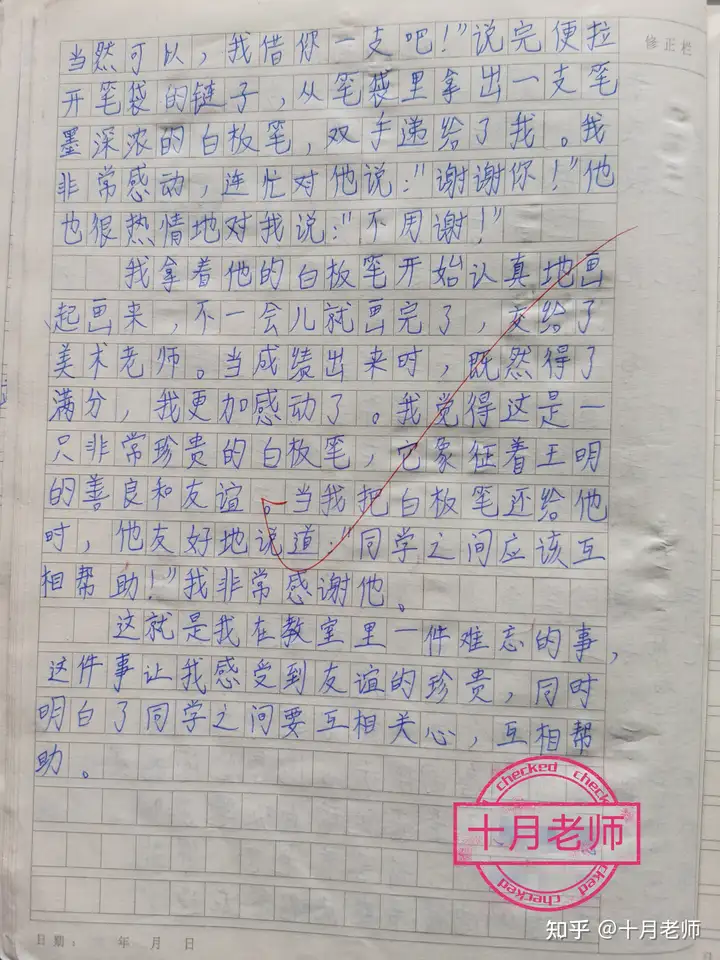 修正栏
当然可以，我借你一支吧！”说完便拉
开笔袋的链子，从笔袋里拿出一支笔
墨深浓的白板笔，双手递给了我。我
非常感动，连忙对他说：“谢谢你！”他
也很热情地对我说：“不用谢！”
我拿着他的白板笔开始认真地画
起画来，不一会儿就画完了，交给了
美术老师。当成绩出来时，既然得了
满分，我更加感动了。我觉得这是一
只非常珍贵的白板笔，它象征着王明
的善良和友谊。当我把白板笔还给他
时，他友好地说道：“同学之间应该互
相帮助！”我非常感谢他。
这就是我在教室里一件难忘的事，
这件事让我感受到友谊的珍贵，同时
明白了同学之间要互相关心，互相帮
助。
checked checked
十月老师
checked checked
日期： 年 月 日
知乎 @十月老师